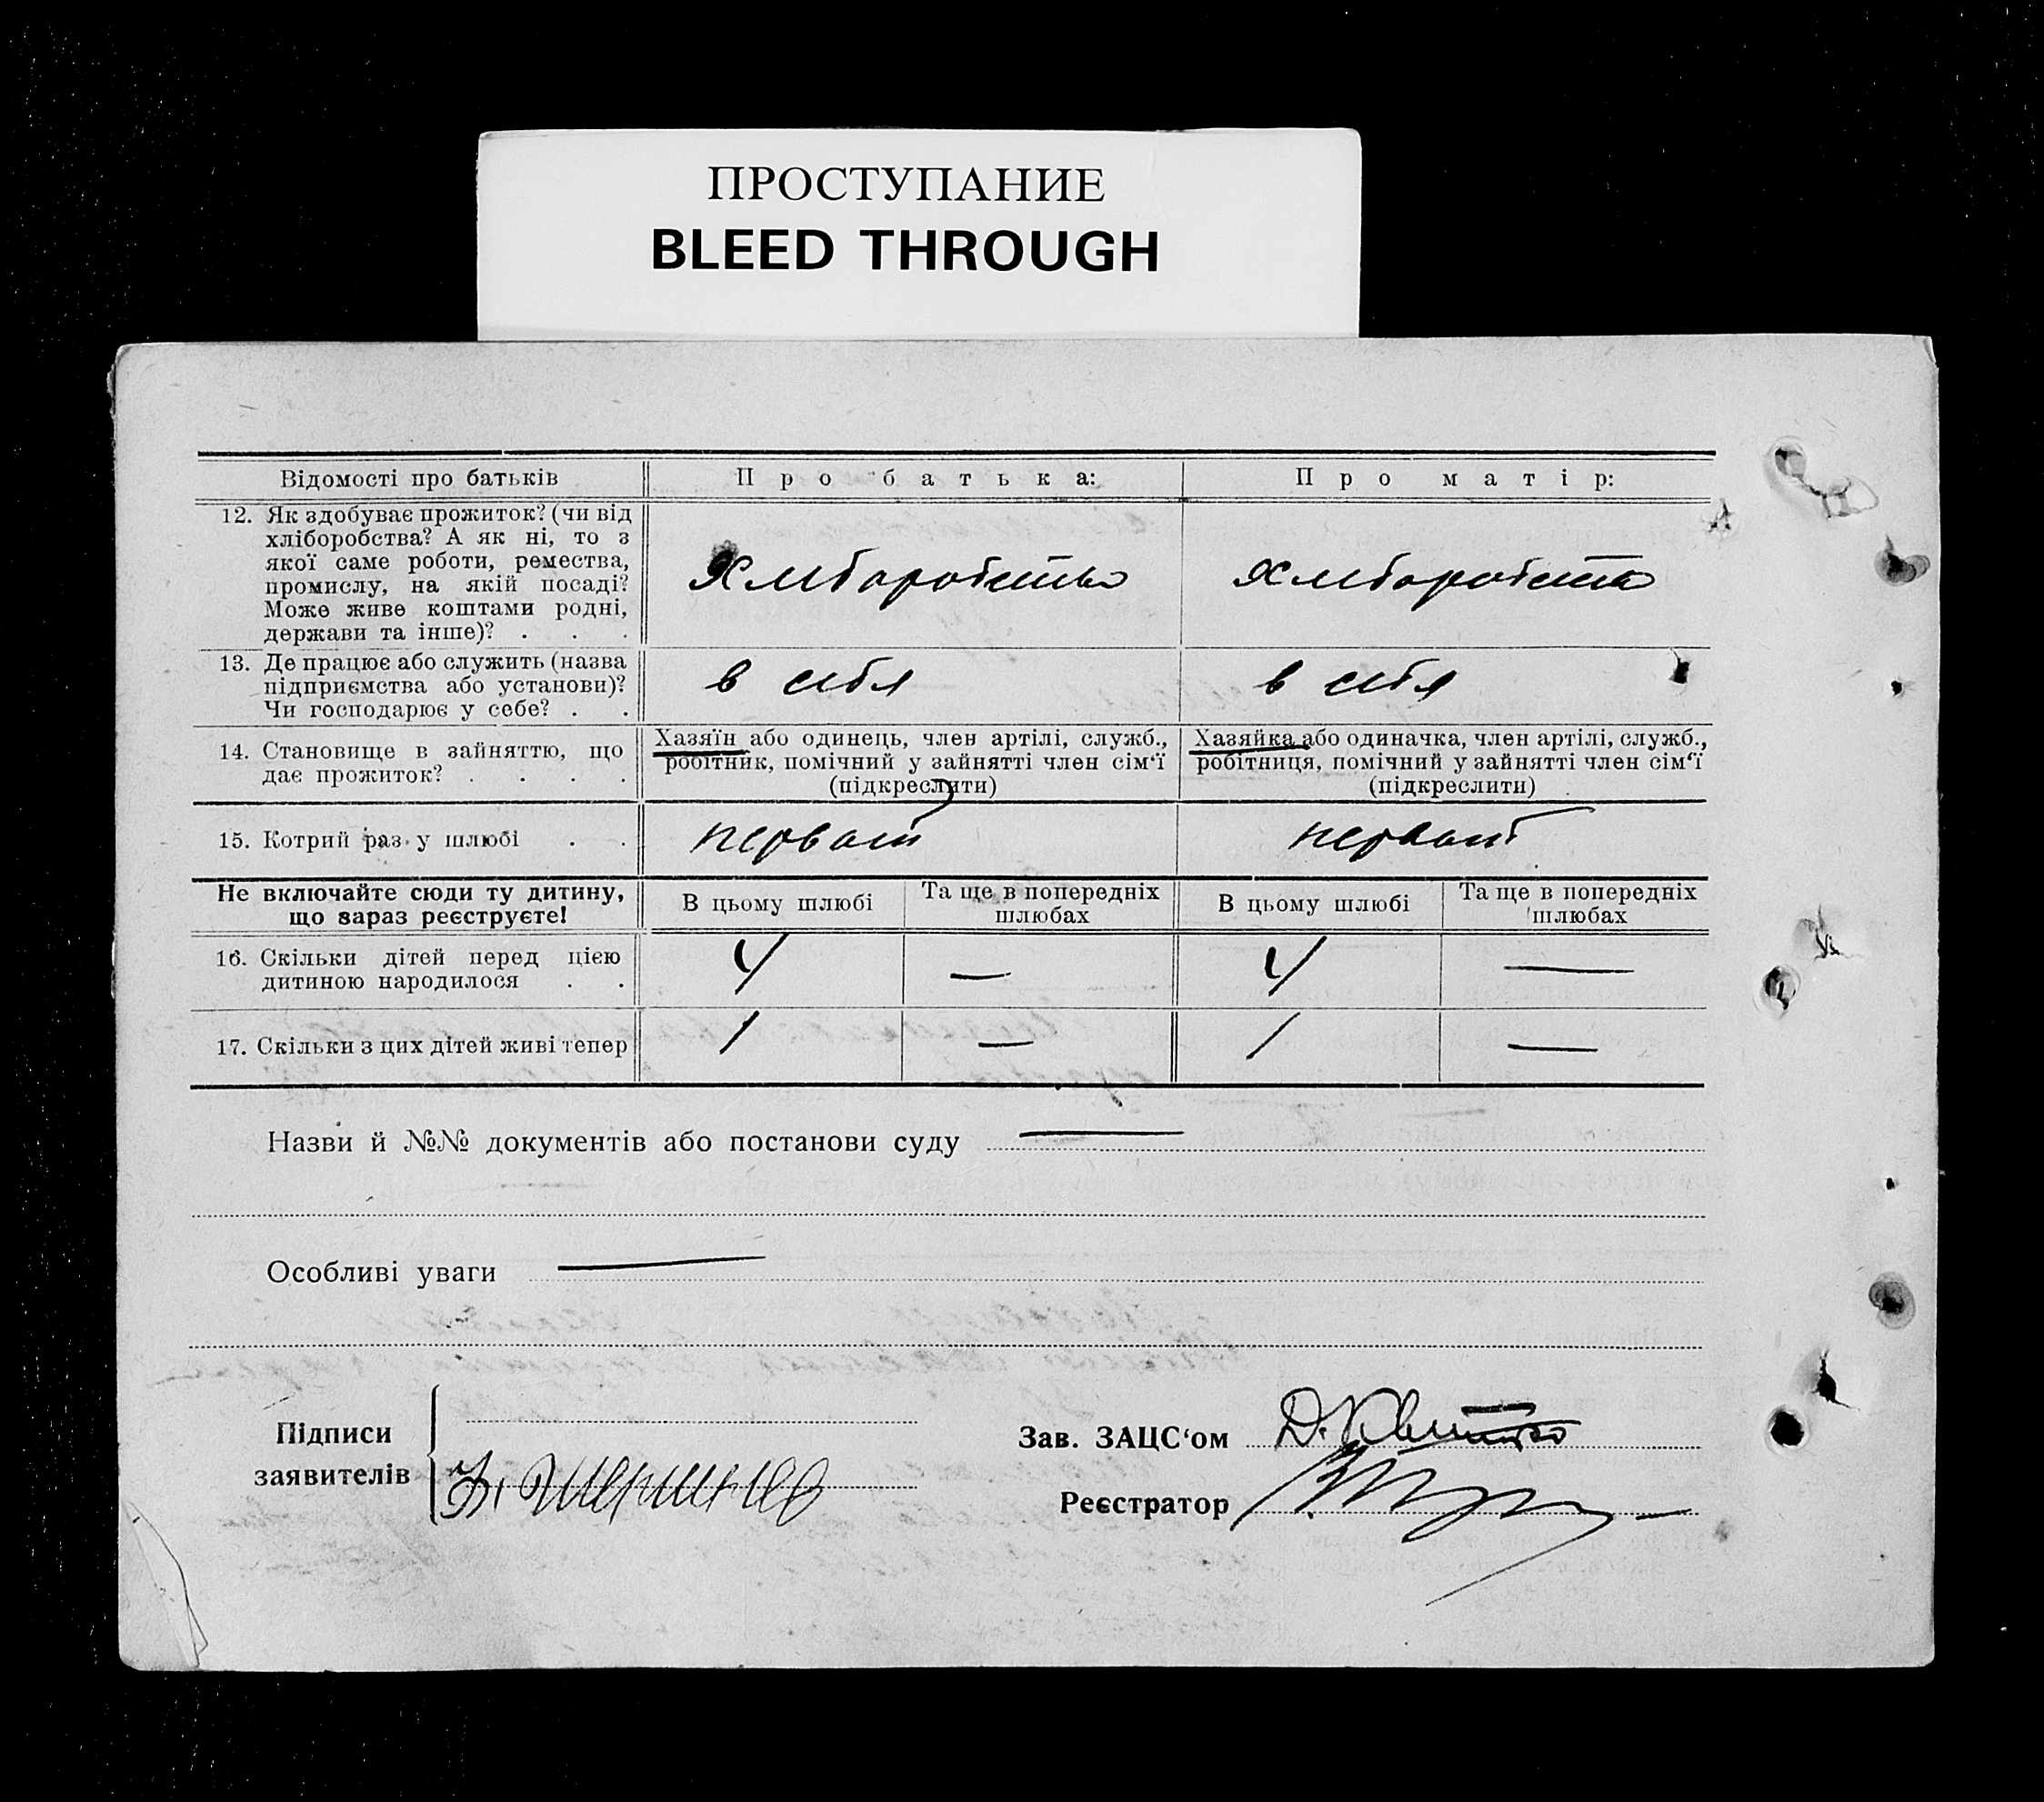 ПРОСТУПАНИЕ
BLEED THROUGH
Відомості про батьків
Про батька:
Про матір:
12. Як здобуває прожиток? (чи від
хліборобства? А як ні, то з
якої саме роботи, ремества,
промислу, на якій посаді?
Може живе коштами родні,
держави та інше)? . . .
Хліборобство
Хліборобство
13. Де працює або служить (назва
підприємства або установи)?
Чи господарює у себе? . .
в себя
в себя
14. Становище в зайняттю, що
дає прожиток? . . . .
Хазяїн або одинець, член артілі, служб.,
робітник, помічний у зайнятті член сім'ї
(підкреслити)
Хазяйка або одиначка, член артілі, служб.,
робітниця, помічний у зайнятті член сім'ї
(підкреслити)
15. Котрий раз у шлюбі . .
первый
первый
Не включайте сюди ту дитину,
що зараз реєструєте!
В цьому шлюбі
Та ще в попередніх
шлюбах
В цьому шлюбі
Та ще в попередніх
шлюбах
16. Скільки дітей перед цією
дитиною народилося . .
4
—
4
—
17. Скільки з цих дітей живі тепер
1
—
1
—
Назви й №№ документів або постанови суду —
Особливі уваги —
Підписи
заявителів
Зав. ЗАЦС'ом
Реєстратор